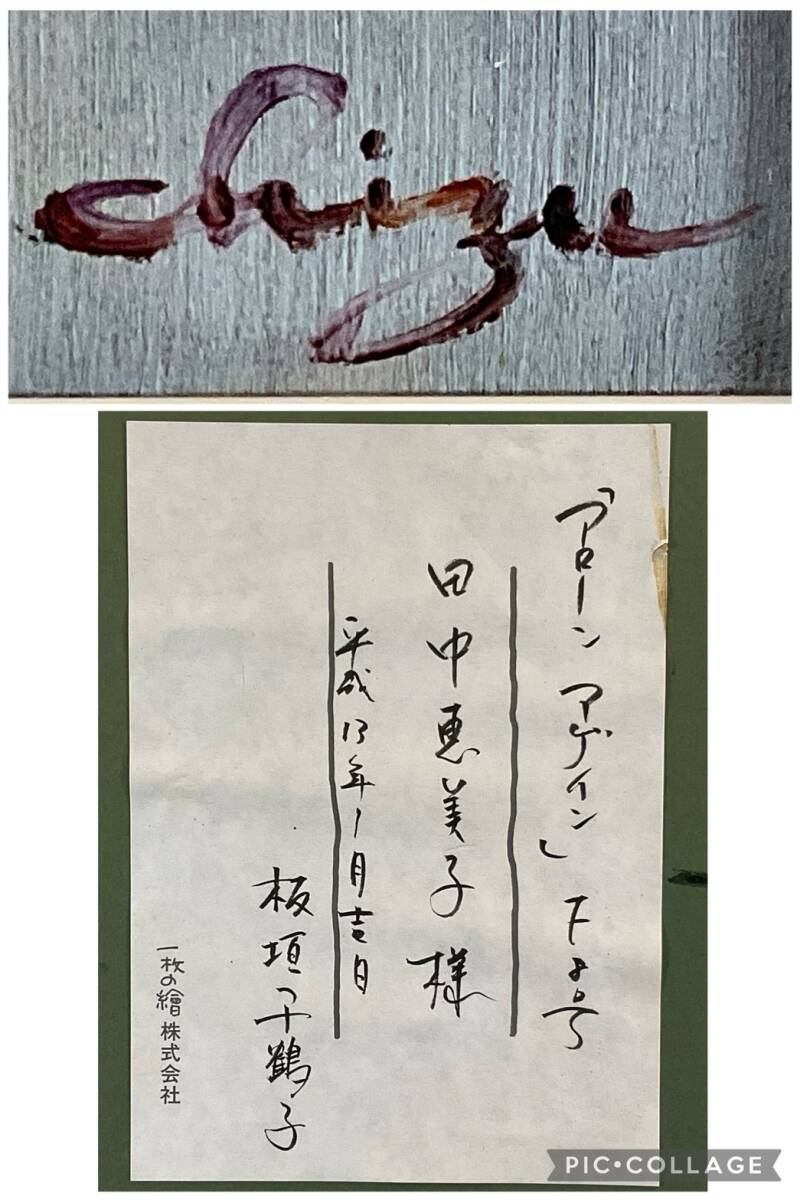 chizu
「アローン アゲイン」 F8号
田中恵美子様
平成13年1月吉日
板垣千鶴子
一枚の繪株式会社
PIC•COLLAGE